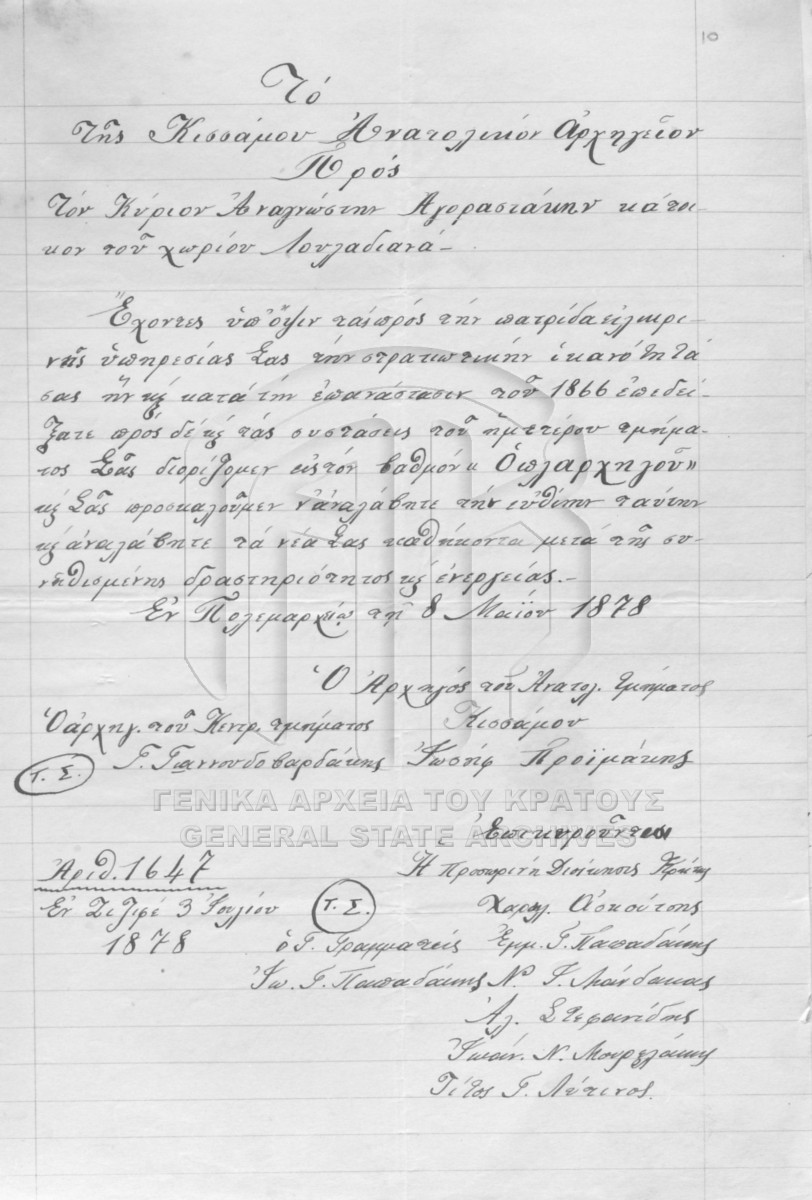 10
Τό
τῆς Κισσάμου Ἀνατολικόν Ἀρχηγεῖον
Πρός
τόν Κύριον Ἀναγνώστην Ἀγοραστάκην κάτοι-
κον τοῦ χωρίου Λουλαδιανά –
Ἔχοντες ὑπ' ὄψιν τάς πρός τήν πατρίδα εἰλικρι-
νῆς ὑπηρεσίας Σας τήν στρατιωτικήν ἱκανότητά
σας ἥν κ̀ κατά τήν ἐπανάστασιν τοῦ 1866 ἐπιδεί-
ξατε πρός δέ κ̀ τάς συστάσεις τοῦ ἡμετέρου τμήμα-
τος Σᾶς διορίζομεν εἰς τόν βαθμόν « Ὁπλαρχηγοῦ»
κ̀ Σᾶς προσκαλοῦμεν ν' ἀναλάβητε τήν εὐθύνην ταύτην
κ̀ ἀναλάβητε τά νέα Σας καθήκοντα μετά τῆς συ-
νηθισμένης δραστηριότητος κ̀ ἐνεργείας. –
Ἐν Πολεμαρχείῳ τῇ 8 Μαΐου 1878
Ὁ Ἀρχηγός τοῦ Ἀνατολ. τμήματος
Κισσάμου
Ὁ ἀρχηγ. τοῦ Κεντρ. τμήματος
Τ.Σ. Γ. Γιαννουδοβαρδάκης Ἰωσήφ Προϊμάκης
ΓΕΝΙΚΑ ΑΡΧΕΙΑ ΤΟΥ ΚΡΑΤΟΥΣ
GENERAL STATE ARCHIVES
Ἐπικυροῦνται
Ἀριθ. 1647
Ἐν Ζιζιφέ 3 Ἰουλίου
1878
Τ.Σ.
Ἡ Προσωρινή Διοίκησις Κρήτης
Χαραλ. Ἀσκούτσης
ὁ Γ. Γραμματεύς Ἐμμ. Γ. Παπαδάκης
Ἰω. Γ. Παπαδάκης Ν. Γ. Μάνδακας
Ἀλ. Στεφανίδης
Ἰωάν. Ν. Μουρελάκης
Τίτος Γ. Λύτινος.